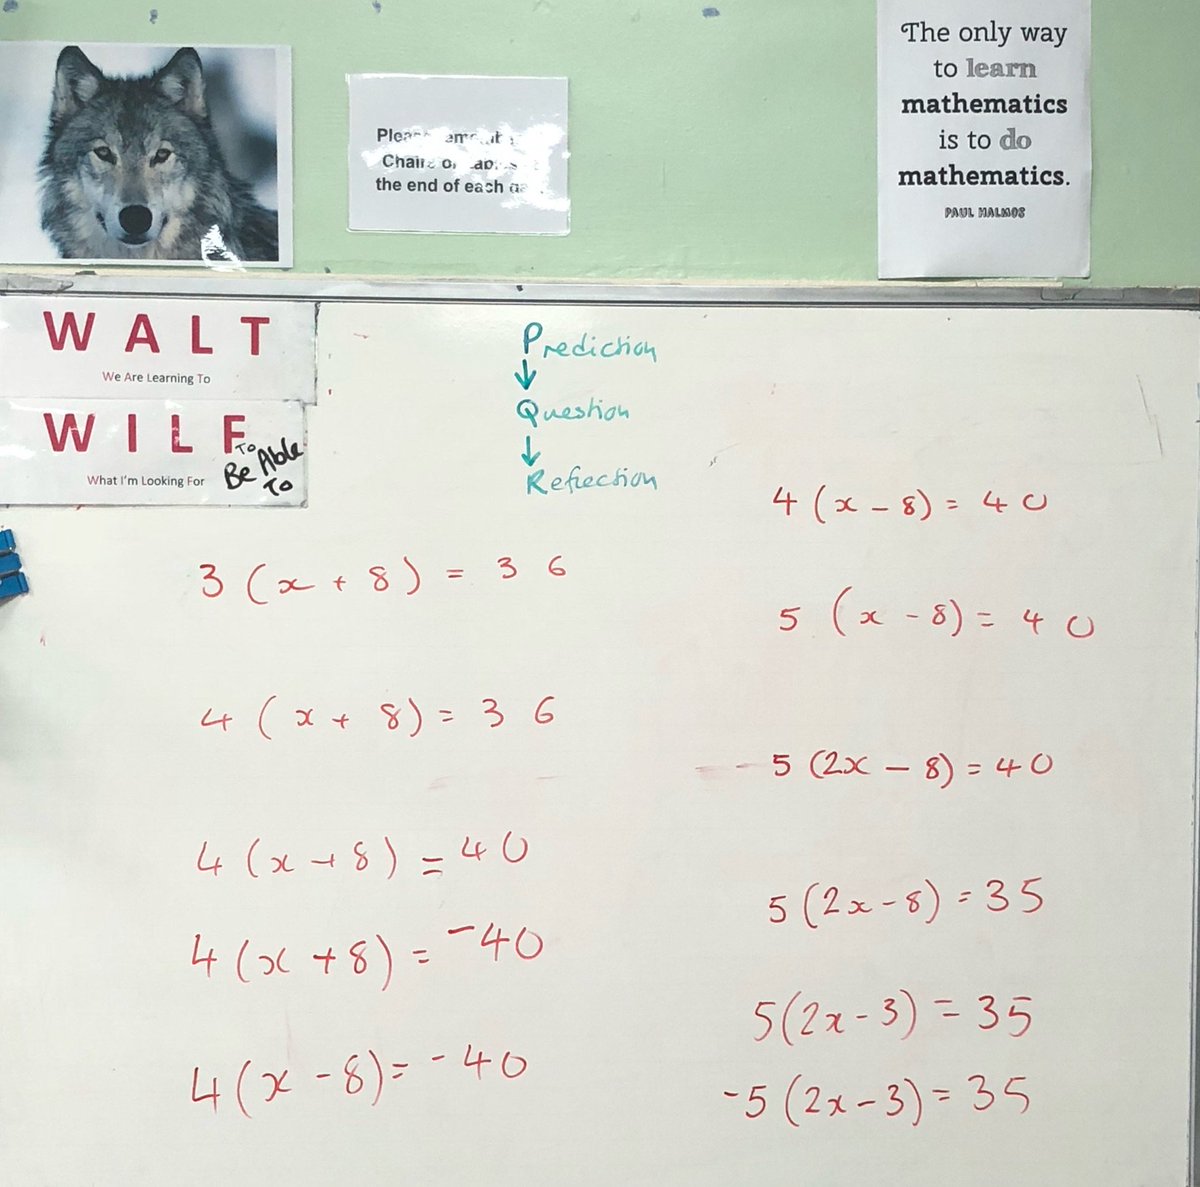 The only way
to learn
mathematics
is to do
mathematics.
PAUL HALMOS
Chairs
the end of each
WALT
We Are Learning To
WILF
What I'm Looking For
To
Be Able
To
Prediction
↓
Question
↓
Reflection
3(x + 8) = 36
4(x + 8) = 36
4(x + 8) = 40
4(x + 8) = -40
4(x - 8) = -40
4(x - 8) = 40
5(x - 8) = 40
5(2x - 8) = 40
5(2x - 8) = 35
5(2x - 3) = 35
-5(2x - 3) = 35